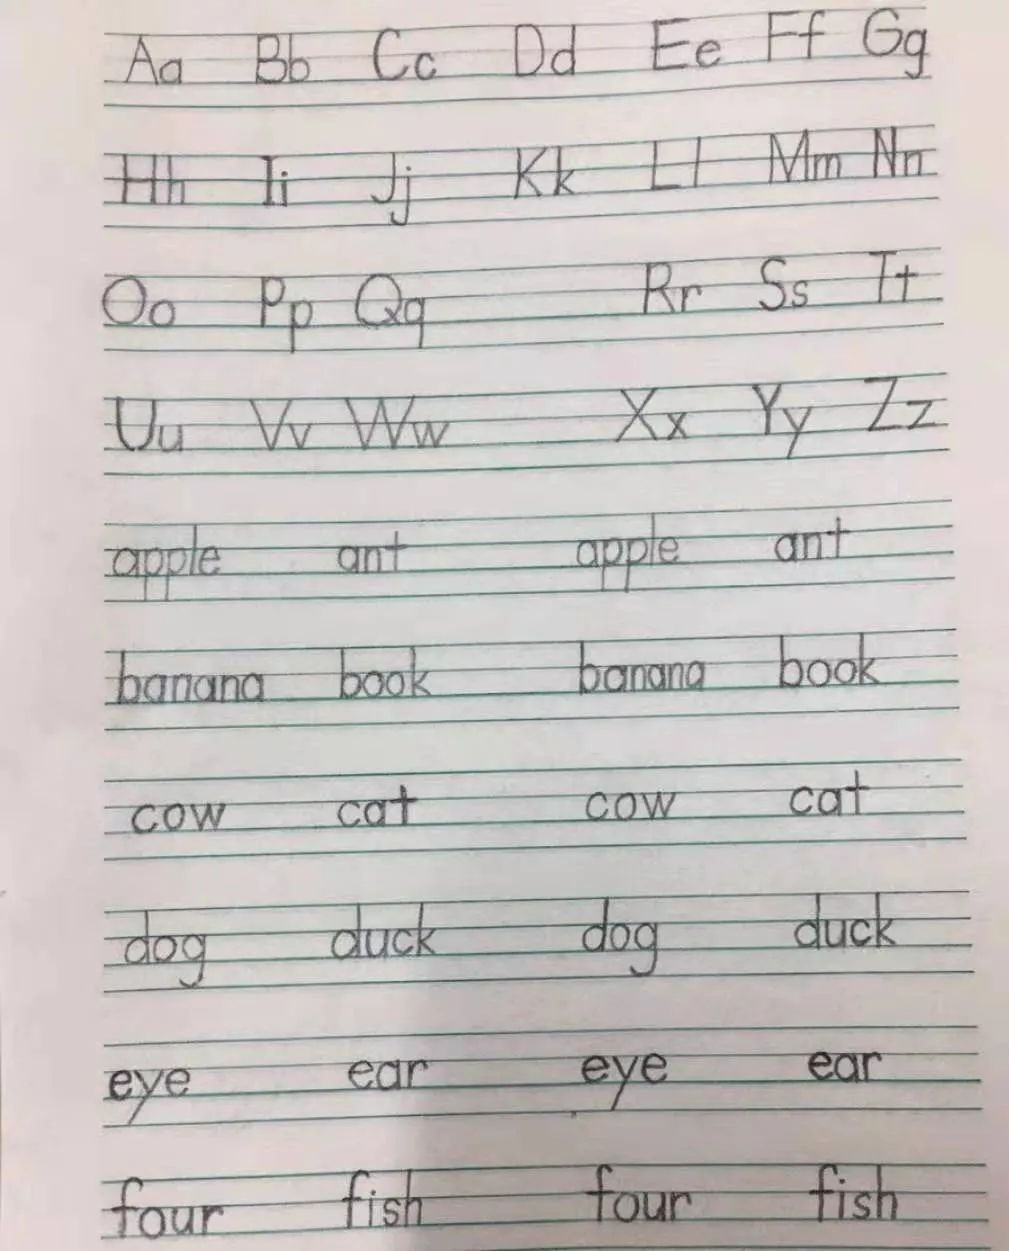 Aa Bb Cc Dd Ee Ff Gg
Hh Ii Jj Kk Ll Mm Nn
Oo Pp Qq Rr Ss Tt
Uu Vv Ww Xx Yy Zz
apple ant apple ant
banana book banana book
cow cat cow cat
dog duck dog duck
eye ear eye ear
four fish four fish